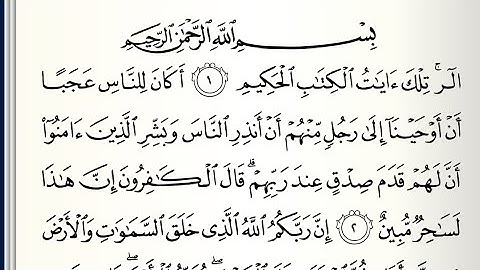 بِسْمِ ٱللَّهِ ٱلرَّحْمَٰنِ ٱلرَّحِيمِ
الٓر ۚ تِلْكَ ءَايَٰتُ ٱلْكِتَٰبِ ٱلْحَكِيمِ ١ أَكَانَ لِلنَّاسِ عَجَبًا
أَنْ أَوْحَيْنَآ إِلَىٰ رَجُلٍ مِّنْهُمْ أَنْ أَنذِرِ ٱلنَّاسَ وَبَشِّرِ ٱلَّذِينَ ءَامَنُوٓا۟
أَنَّ لَهُمْ قَدَمَ صِدْقٍ عِندَ رَبِّهِمْ ۗ قَالَ ٱلْكَٰفِرُونَ إِنَّ هَٰذَا
لَسَٰحِرٌ مُّبِينٌ ٢ إِنَّ رَبَّكُمُ ٱللَّهُ ٱلَّذِى خَلَقَ ٱلسَّمَٰوَٰتِ وَٱلْأَرْضَ